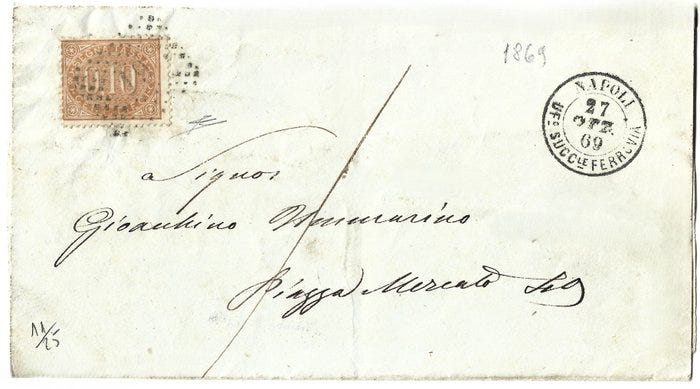 0,10
1869
NAPOLI
27
69
UFO SUCCLE FERROVIA
a Signor
Gioacchino
Piazza Mercato
11/25